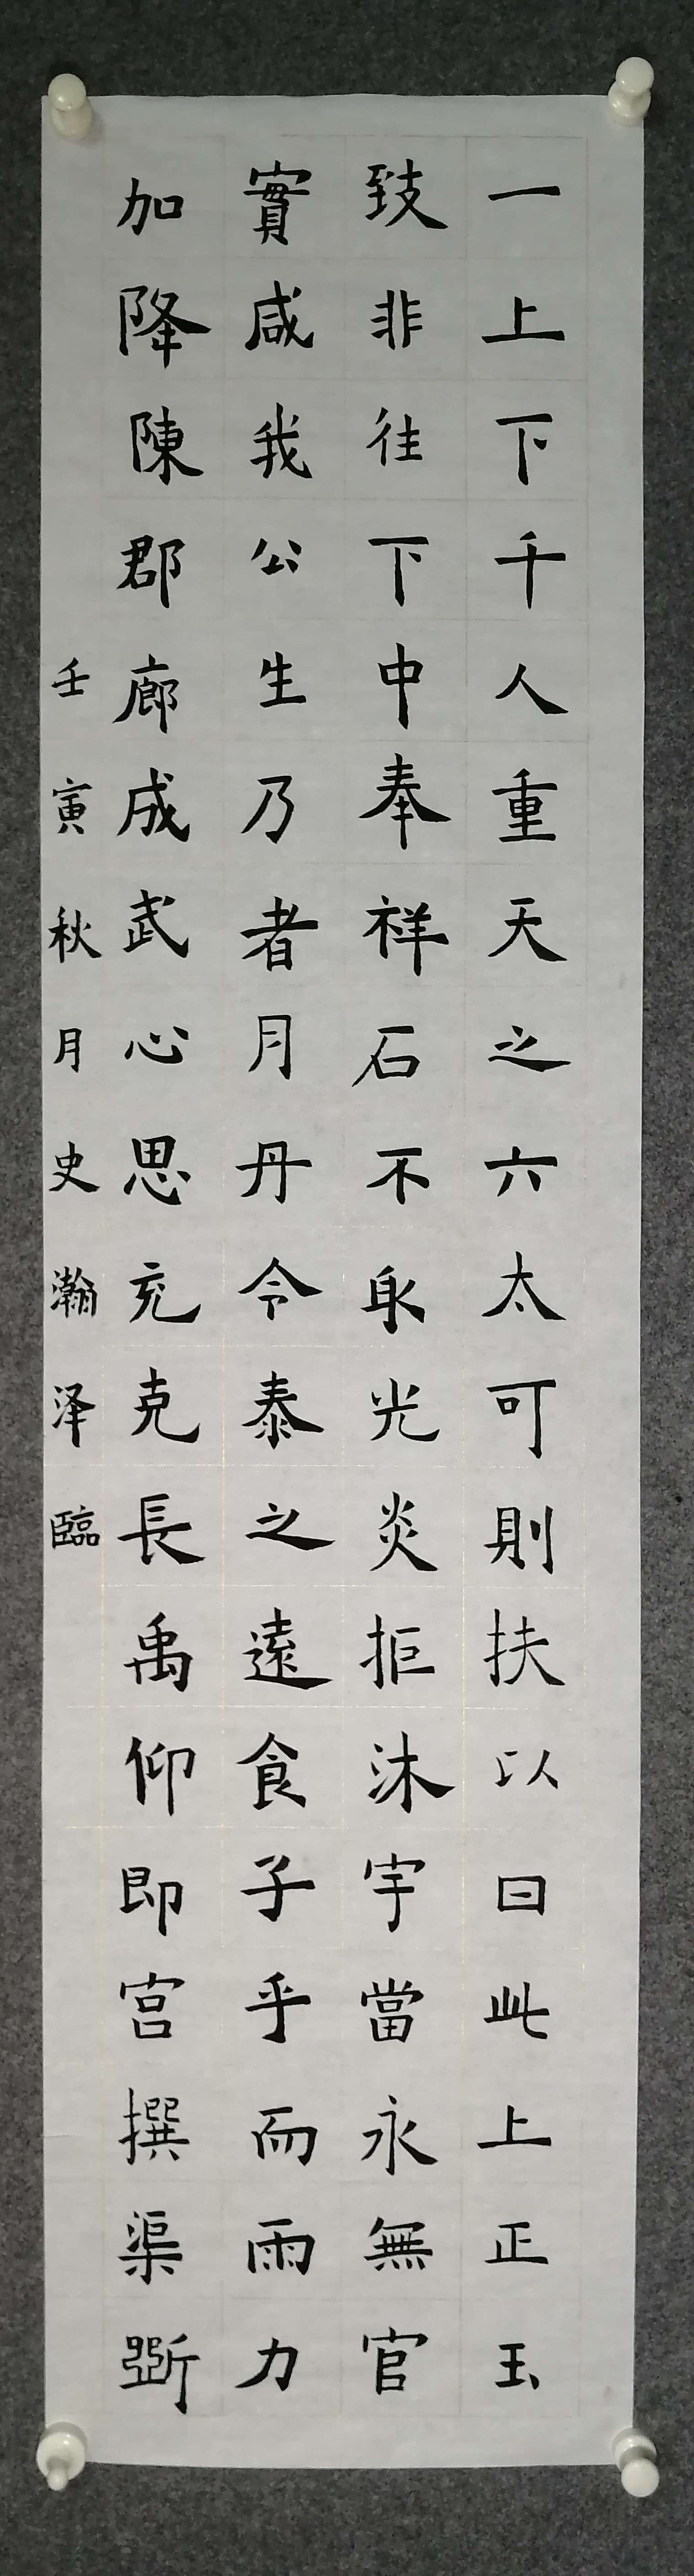 一上下千人重天之六太可則扶以曰此上正玉
致非往下中奉祥石不取光炎拒沐宇當永無官
實咸我公生乃者月丹令泰之遠食子乎而雨力
加降陳郡廊成武心思充克長禹仰即宮撰渠斷
壬寅秋月史瀚泽臨